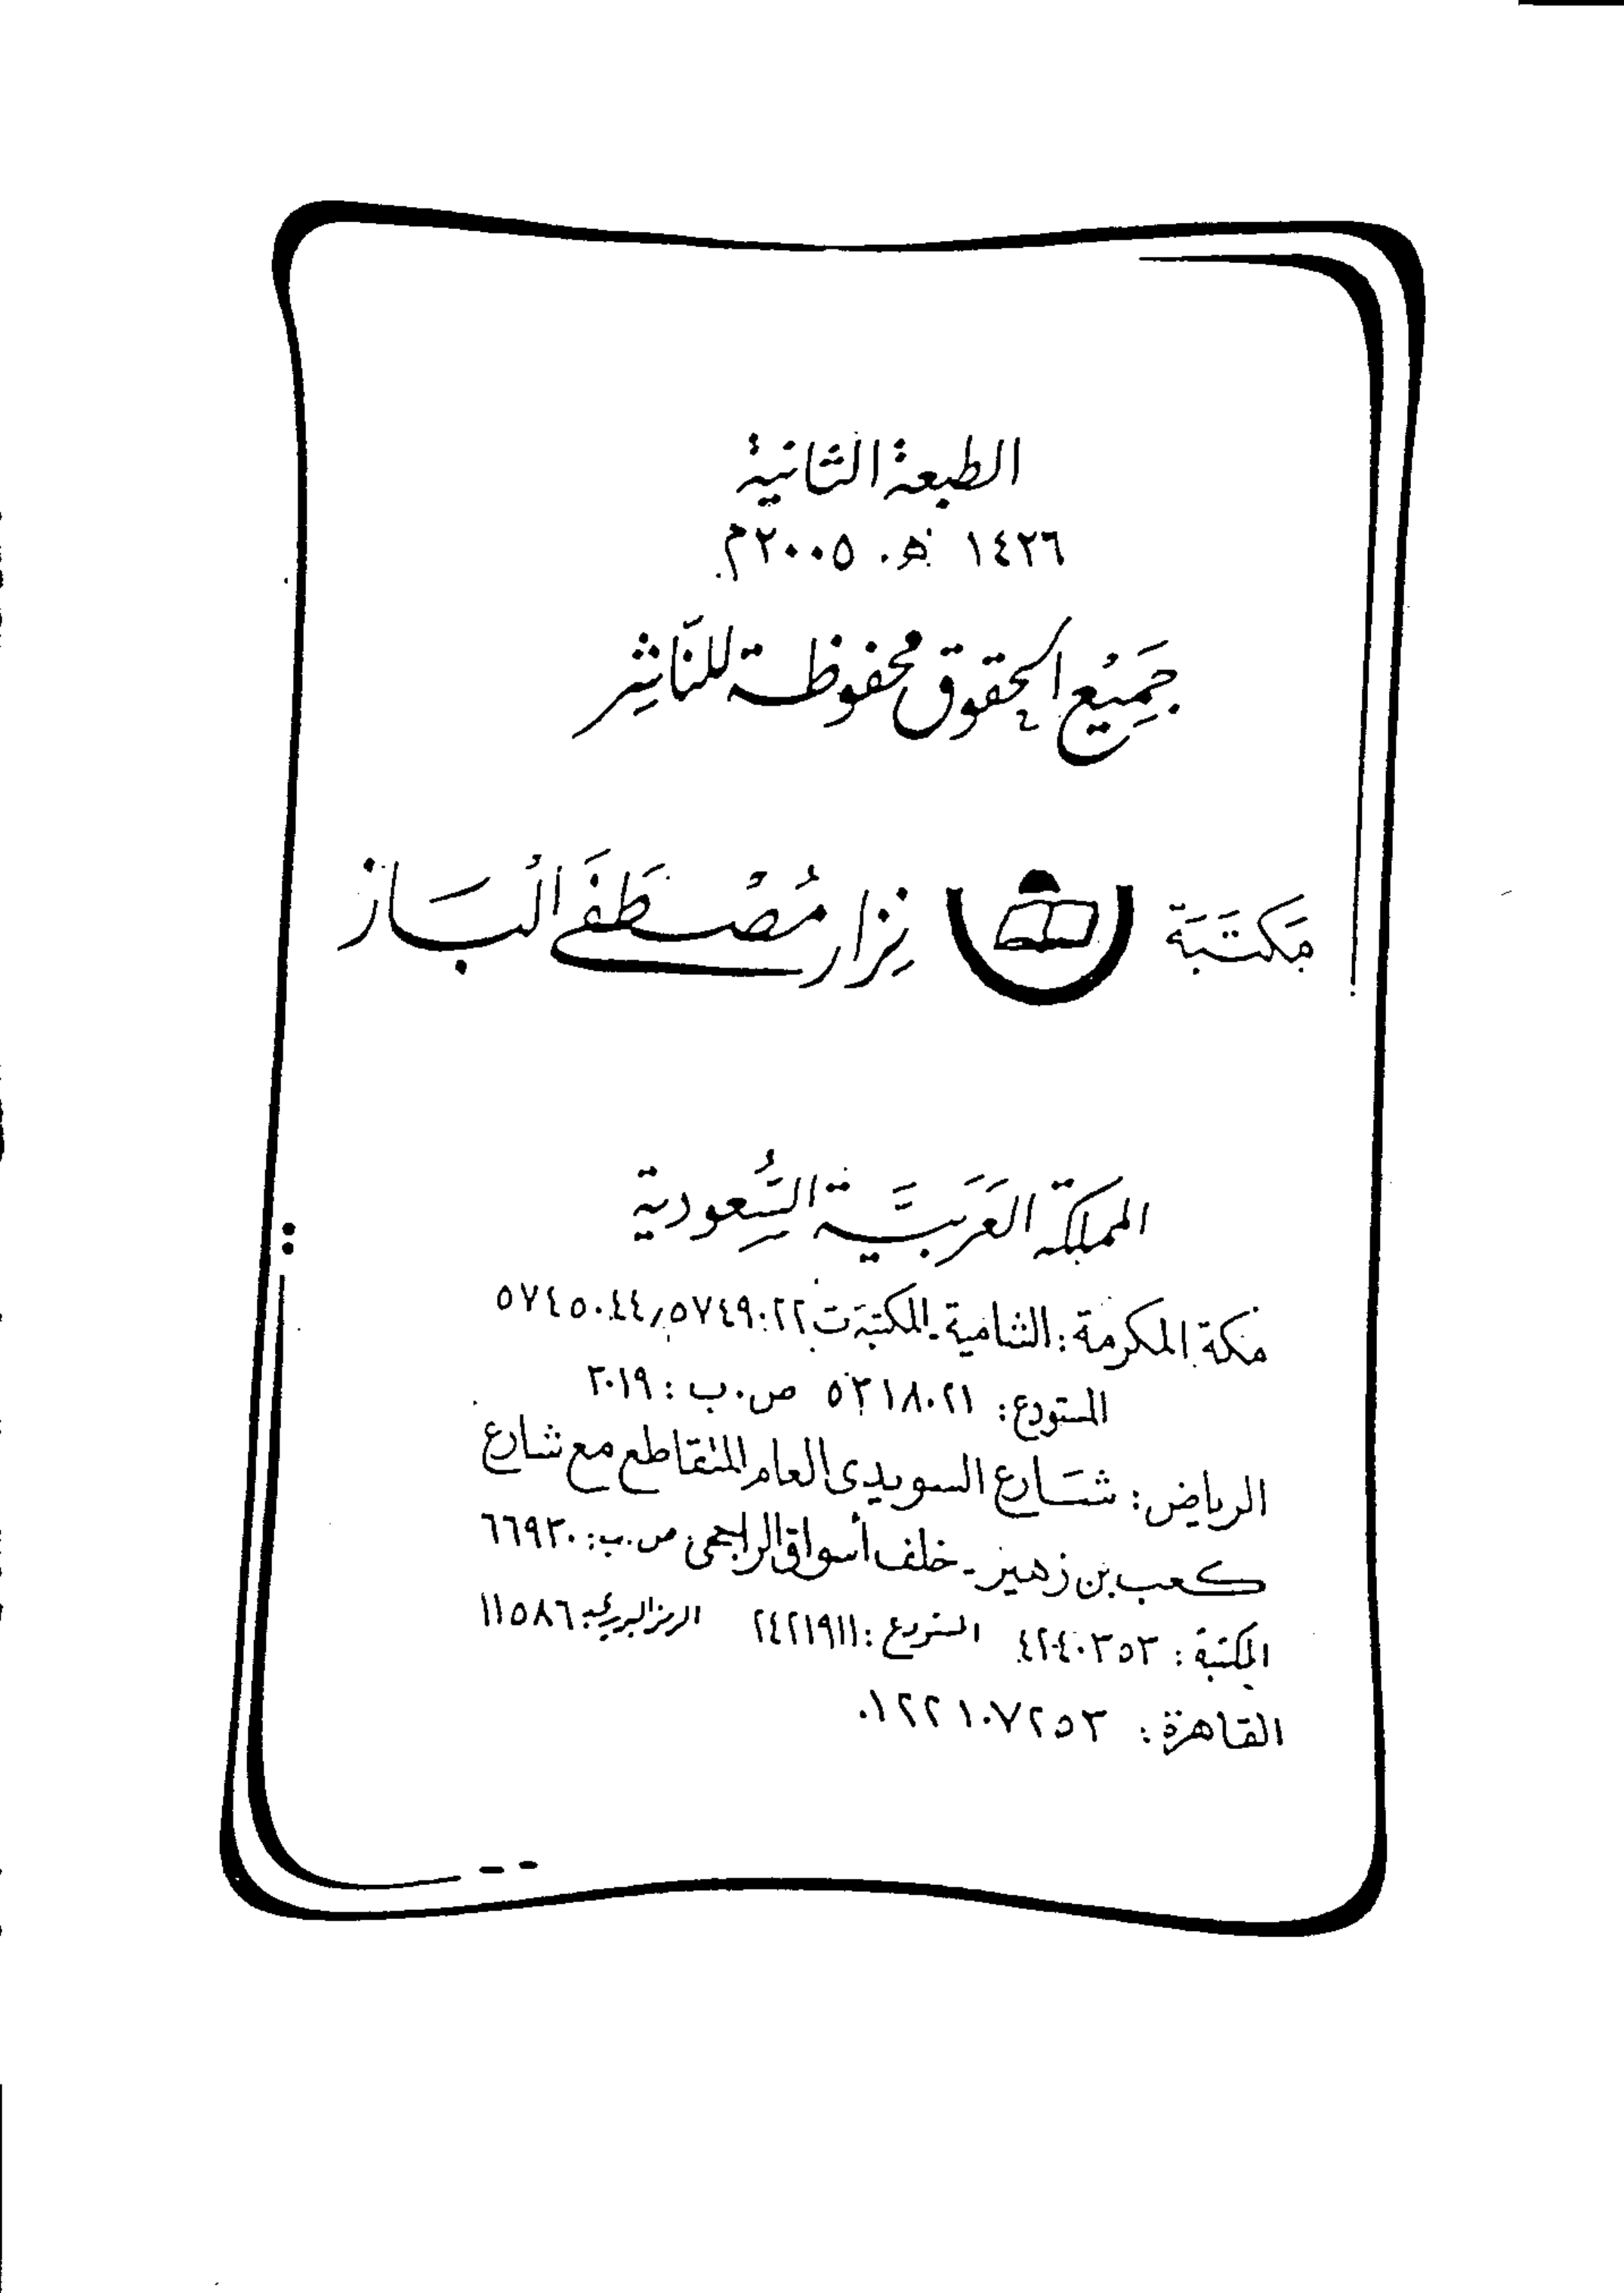 الطبعة الثانية
١٤٢٦ هـ. ٢٠٠٥م
جَمِيْع الحقوق محفوظة للنَّاشِر
مَكتَبَة نِزار مُصْطَفَى البَاز
المملكة العَرَبيَّة السُّعودية
مكة المكرمة: الشامية ـ المكتبة ت ٥٧٤٩٠٢٢/٥٧٤٥٠٤٤
المستودع: ٥٣١٨٠٢١ ص.ب: ٢٠١٩
الرياض: شَارع السويدى العام المتقاطع مع شارع
كعب بن زهير ـ خلف أسواق الراجحى ص.ب: ٦٦٩٢٠
المكتبة: ٤٢٤٠٣٥٣ المستودع: ٢٤٢١٩١١ الرمز البريدي ١١٥٨٦
القاهرة: ٠١٢٢١٠٧٢٥٣